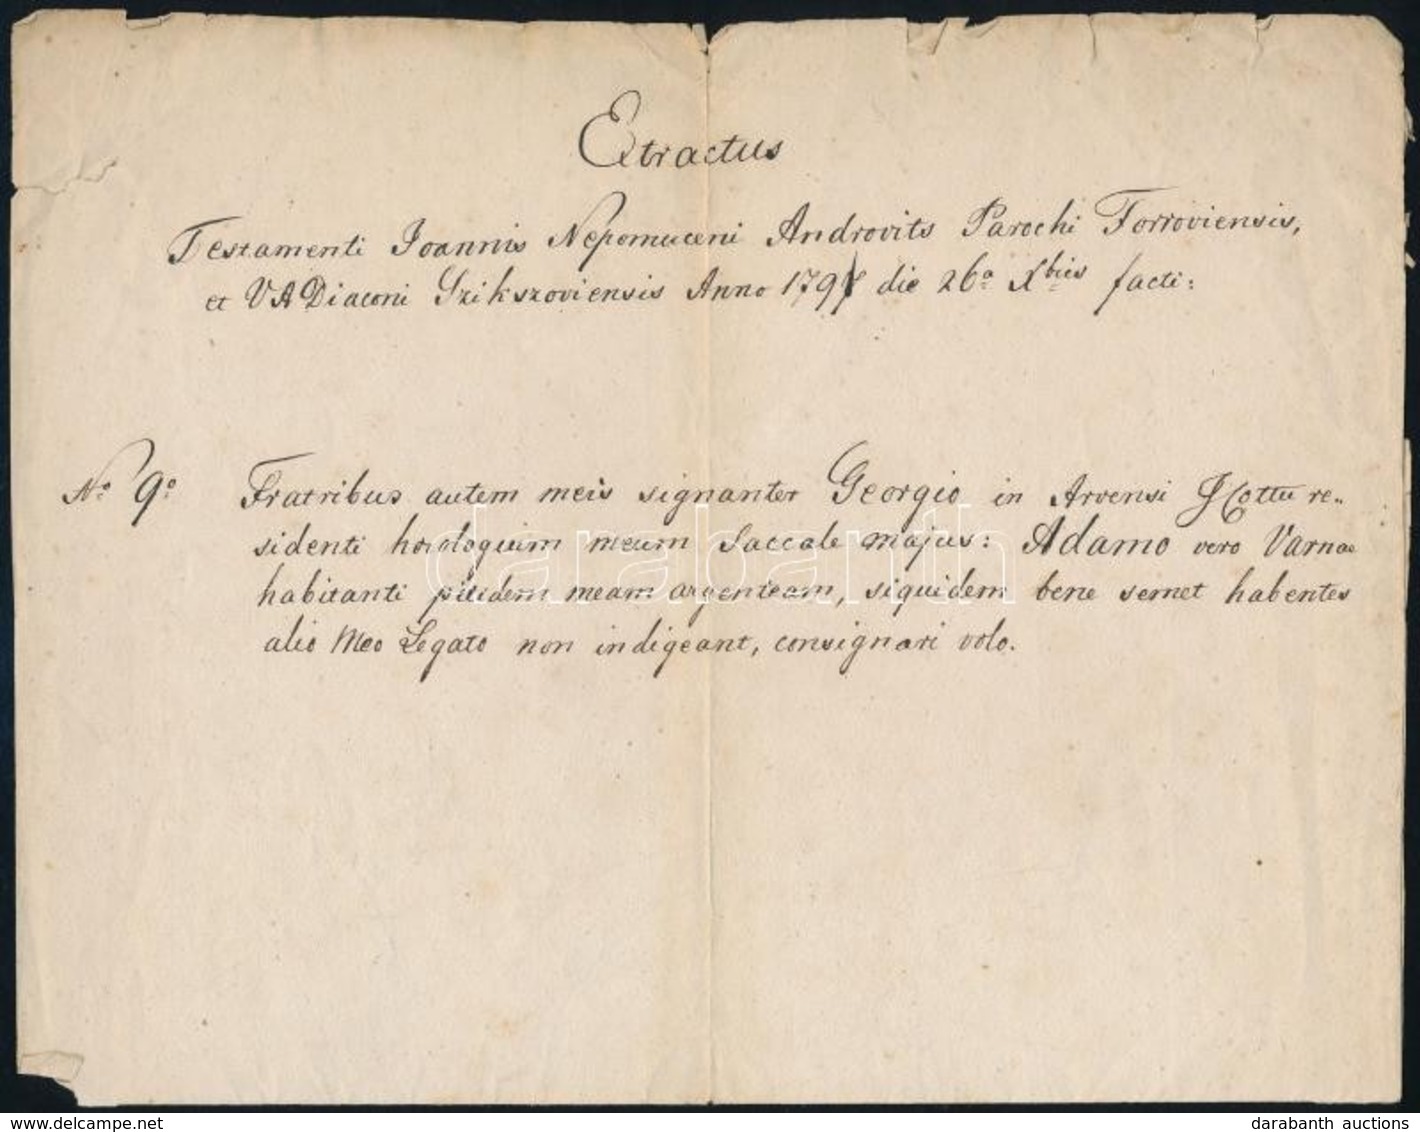 Extractus
Testamenti Joannis Nepomuceni Androvits Parochi Forroviensis,
et VADiaconi Szikszoviensis Anno 1797 die 26a Xbris facti:
No 9o Fratribus autem meis signanter Georgio in Arvensi I Cottu re-
sidenti horologium meum Saccale majus: Adamo vero Varnae
habitanti pixidem meam argenteam, siquidem bene semet habentes
alio Meo Legato non indigeant, consignari volo.
darabanth
darabanth auctions